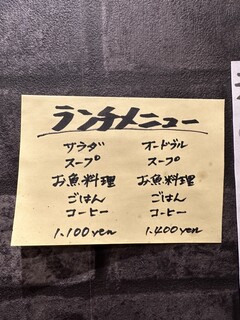 ランチメニュー
サラダ
スープ
お魚料理
ごはん
コーヒー
1.100yen
オードブル
スープ
お魚料理
ごはん
コーヒー
1.400yen